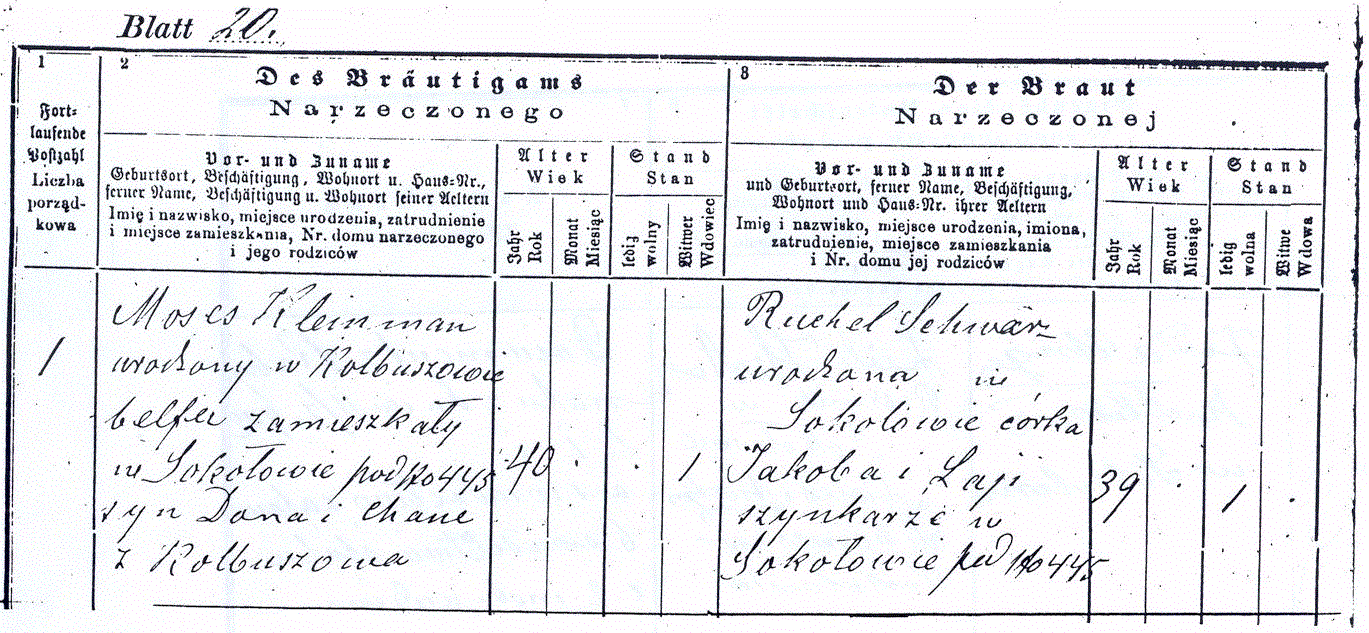 Blatt 20.
1
Fort-
laufende
Postzahl
Liczba
porząd-
kowa
2
Des Bräutigams
Narzeczonego
Vor- und Zuname
Geburtsort, Beschäftigung, Wohnort u. Haus-Nr.,
ferner Name, Beschäftigung u. Wohnort seiner Aeltern
Imię i nazwisko, miejsce urodzenia, zatrudnienie
i miejsce zamieszkania, Nr. domu narzeczonego
i jego rodziców
Alter
Wiek
Jahr
Rok
Monat
Miesiąc
Stand
Stan
ledig
wolny
Witwer
Wdowiec
3
Der Braut
Narzeczonej
Vor- und Zuname
und Geburtsort, ferner Name, Beschäftigung,
Wohnort und Haus-Nr. ihrer Aeltern
Imię i nazwisko, miejsce urodzenia, imiona,
zatrudnienie, miejsce zamieszkania
i Nr. domu jej rodziców
Alter
Wiek
Jahr
Rok
Monat
Miesiąc
Stand
Stan
ledig
wolna
Witwe
Wdowa
1
Moses Kleinman
urodzony w Kolbuszowie
belfer zamieszkały
w Sokołowie pod No 445
syn Dona i Chane
z Kolbuszowa
40
1
Ruchel Schwärz
urodzona w
Sokołowie córka
Jakoba i Łaji
szynkarze w
Sokołowie pod No 445
39
1